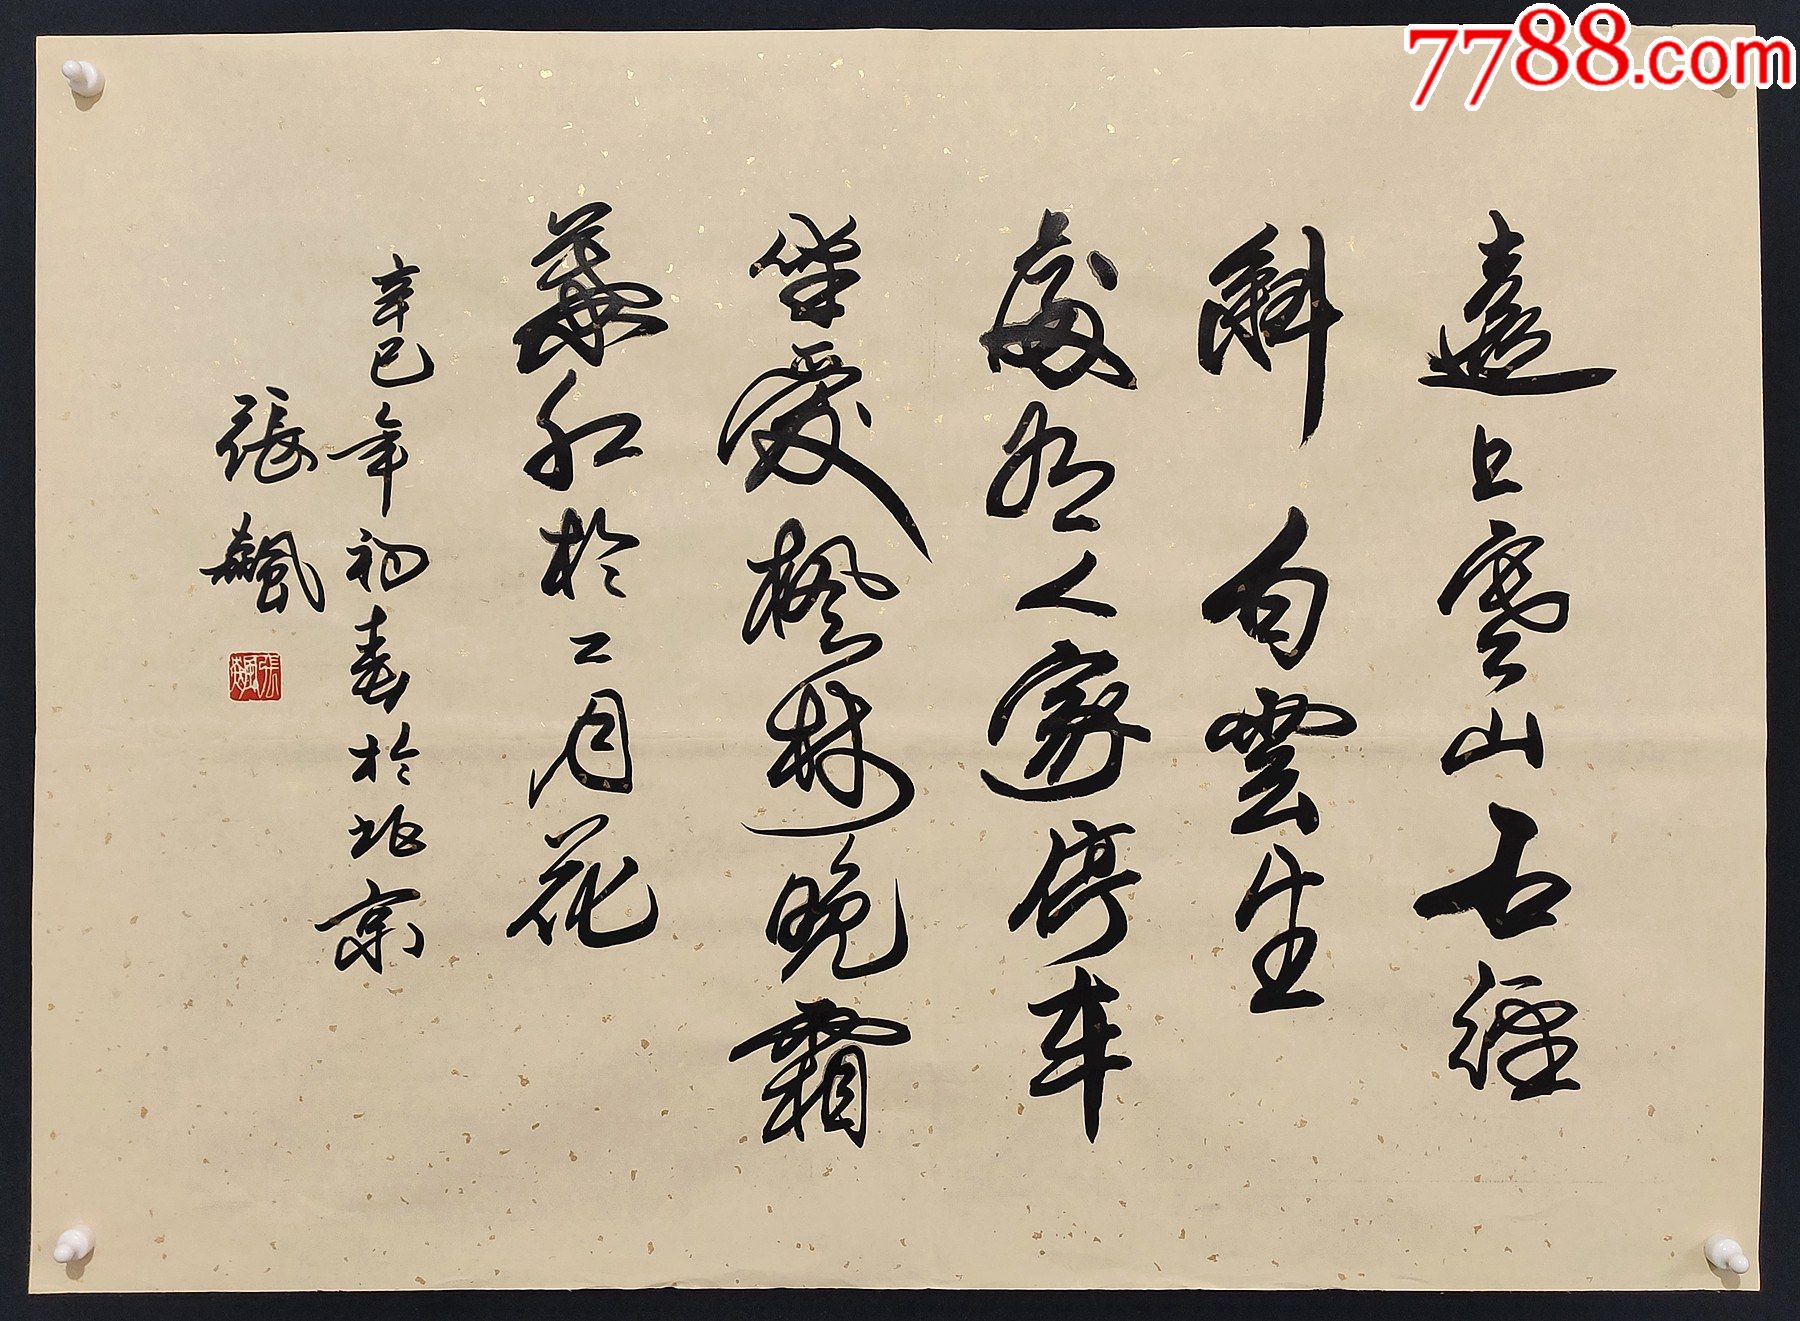 遠上寒山石徑
斜白雲生
處有人家停車
坐愛楓林晚霜
葉紅於二月花
辛巳年初春於北京
張飆
張飆
7788.com